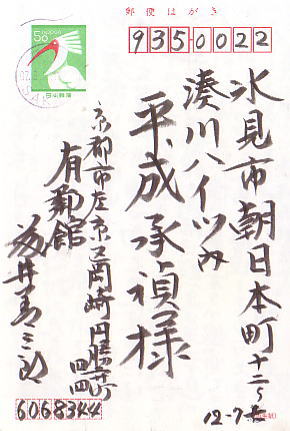 郵便はがき
50
NIPPON
日本郵便
935-0022
氷見市朝日本町十二~
湊川ハイツ内
平成承禎様
京都市左京区岡崎円勝寺町
四四
有鄰館
藤井善三郎
6068344
12-7-